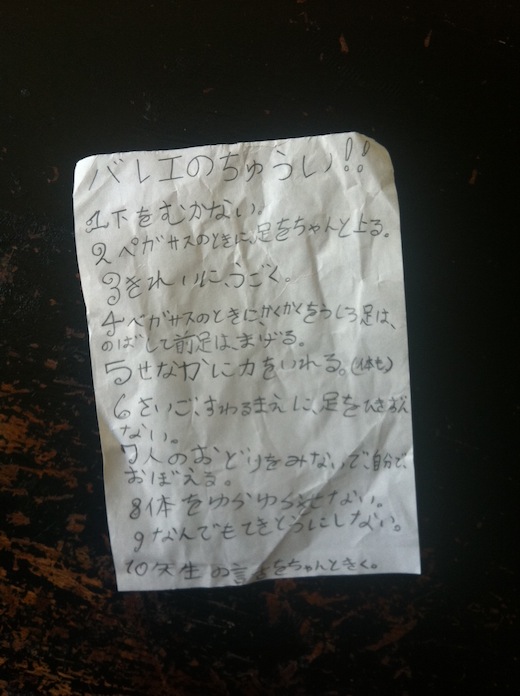 バレエのちゅうい!!
1下をむかない。
2ペガサスのときに、足をちゃんと上る。
3きれいに、うごく。
4ペガサスのときに、かくかくをうしろ足は、
のばして前足は、まげる。
5せなかに力をいれる。(体も)
6さいご、すわるまえに、足をひきずら
ない。
7人のおどりをみないで、自分で、
おぼえる。
8体をゆらゆらさせない。
9なんでもてきとうにしない。
10先生の言をちゃんときく。